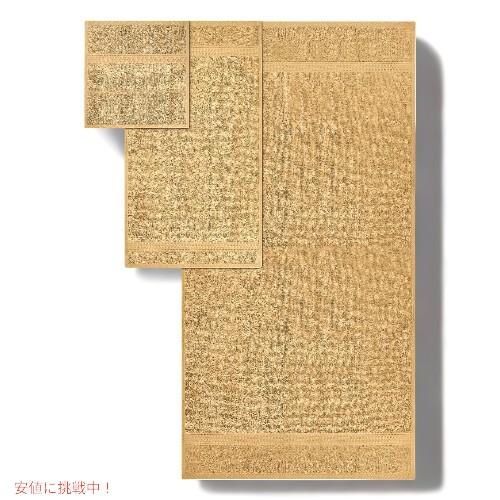 安値に挑戦中！